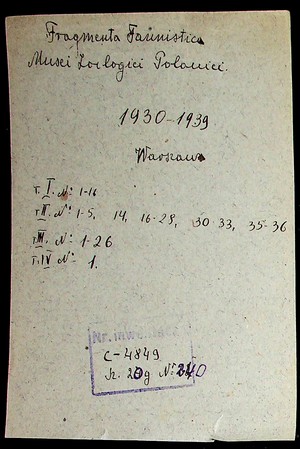 Fragmenta Faunistica
Musei Zoologici Polonici.
1930-1939
Warszawa
T. I. No: 1-16
T. II. No: 1-5, 14, 16-28, 30-33, 35-36
T. III. No: 1-26
T. IV No: 1.
Nr. inwentarz
C-4849